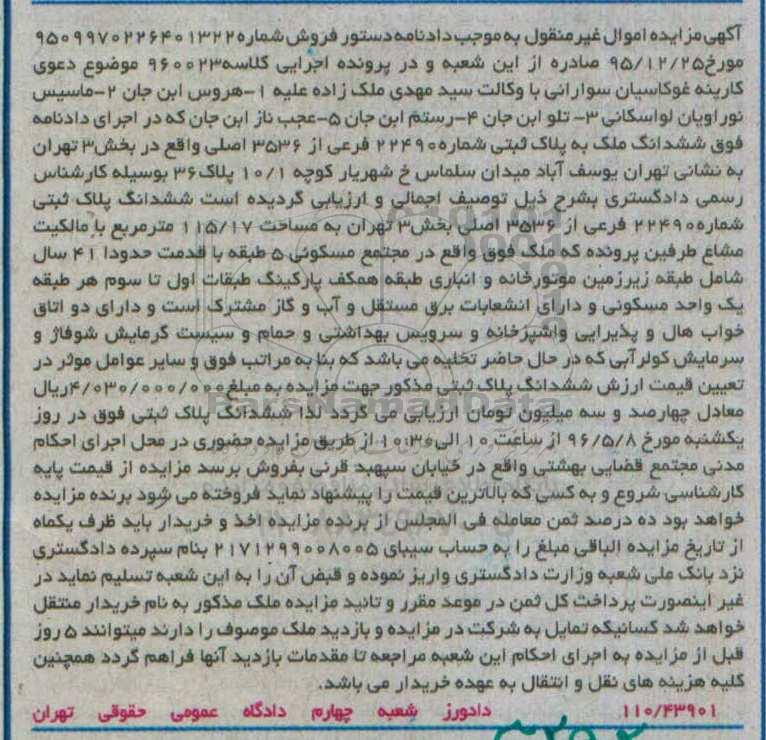 آگهی مزایده اموال غیرمنقول به موجب دادنامه دستور فروش شماره ۹۵۰۹۹۷۰۲۲۶۴۰۱۳۲۲
مورخ ۹۵/۱۲/۲۵ صادره از این شعبه و در پرونده اجرایی کلاسه ۹۶۰۰۲۳ موضوع دعوی
کارینه غوکاسیان سوارانی با وکالت سید مهدی ملک زاده علیه ۱-هروس ابن جان ۲-ماسیس
نوراویان لواسکانی ۳- تلو ابن جان ۴-رستم ابن جان ۵-عجب ناز ابن جان که در اجرای دادنامه
فوق ششدانگ ملک به پلاک ثبتی شماره ۲۲۴۹۰ فرعی از ۳۵۳۶ اصلی واقع در بخش ۳ تهران
به نشانی تهران یوسف آباد میدان سلماس خ شهریار کوچه ۱۰/۱ پلاک ۳۶ بوسیله کارشناس
رسمی دادگستری بشرح ذیل توصیف اجمالی و ارزیابی گردیده است ششدانگ پلاک ثبتی
شماره ۲۲۴۹۰ فرعی از ۳۵۳۶ اصلی بخش ۳ تهران به مساحت ۱۱۵/۱۷ مترمربع با مالکیت
مشاع طرفین پرونده که ملک فوق واقع در مجتمع مسکونی ۵ طبقه با قدمت حدودا ۴۱ سال
شامل طبقه زیرزمین موتورخانه و انباری طبقه همکف پارکینگ طبقات اول تا سوم هر طبقه
یک واحد مسکونی و دارای انشعابات برق مستقل و آب و گاز مشترک است و دارای دو اتاق
خواب هال و پذیرایی واشپزخانه و سرویس بهداشتی و حمام و سیست گرمایش شوفاژ و
سرمایش کولرآبی که در حال حاضر تخلیه می باشد که بنا به مراتب فوق و سایر عوامل موثر در
تعیین قیمت ارزش ششدانگ پلاک ثبتی مذکور جهت مزایده به مبلغ ۴/۰۳۰/۰۰۰/۰۰۰ ریال
معادل چهارصد و سه میلیون تومان ارزیابی می گردد لذا ششدانگ پلاک ثبتی فوق در روز
یکشنبه مورخ ۹۶/۵/۸ از ساعت ۱۰ الی ۱۰:۳۰ از طریق مزایده حضوری در محل اجرای احکام
مدنی مجتمع قضایی بهشتی واقع در خیابان سپهبد قرنی بفروش برسد مزایده از قیمت پایه
کارشناسی شروع و به کسی که بالاترین قیمت را پیشنهاد نماید فروخته می شود برنده مزایده
خواهد بود ده درصد ثمن معامله فی المجلس از برنده مزایده اخذ و خریدار باید ظرف یکماه
از تاریخ مزایده الباقی مبلغ را به حساب سیبای ۲۱۷۱۲۹۹۰۰۸۰۰۵ بنام سپرده دادگستری
نزد بانک ملی شعبه وزارت دادگستری واریز نموده و قبض آن را به این شعبه تسلیم نماید در
غیر اینصورت پرداخت کل ثمن در موعد مقرر و تائید مزایده ملک مذکور به نام خریدار منتقل
خواهد شد کسانیکه تمایل به شرکت در مزایده و بازدید ملک موصوف را دارند میتوانند ۵ روز
قبل از مزایده به اجرای احکام این شعبه مراجعه تا مقدمات بازدید آنها فراهم گردد همچنین
کلیه هزینه های نقل و انتقال به عهده خریدار می باشد.
۱۱۰/۴۳۹۰۱ دادورز شعبه چهارم دادگاه عمومی حقوقی تهران
ParsNamadData